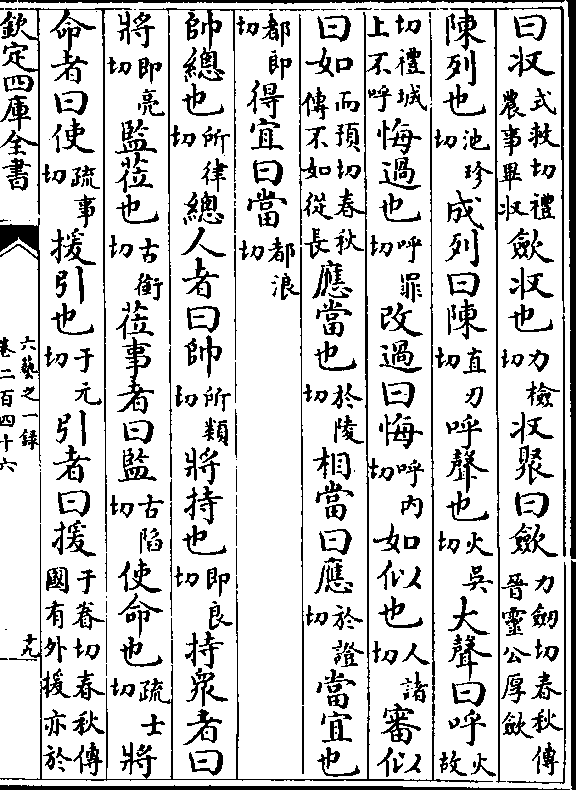 曰収式救切禮農事畢収歛収也力檢切収聚曰歛力劒切春秋傳晉靈公厚歛
陳列也池珍切成列曰陳直刃切呼聲也火吳切大聲曰呼火故
切禮城上不呼悔過也呼罪切改過曰悔呼内切如似也人諸切審似
曰如而預切春秋傳不如從長應當也於陵切相當曰應於證切當宜也
都郎切得宜曰當都浪切
帥總也所律切總人者曰帥所類切將持也即良切持衆者曰
將即亮切監莅也古銜切莅事者曰監古陷切使命也疏士切將
命者曰使疏事切援引也于元切引者曰援于眷切春秋傳國有外援亦於
欽定四庫全書
六藝之一録
卷二百四十六
十九